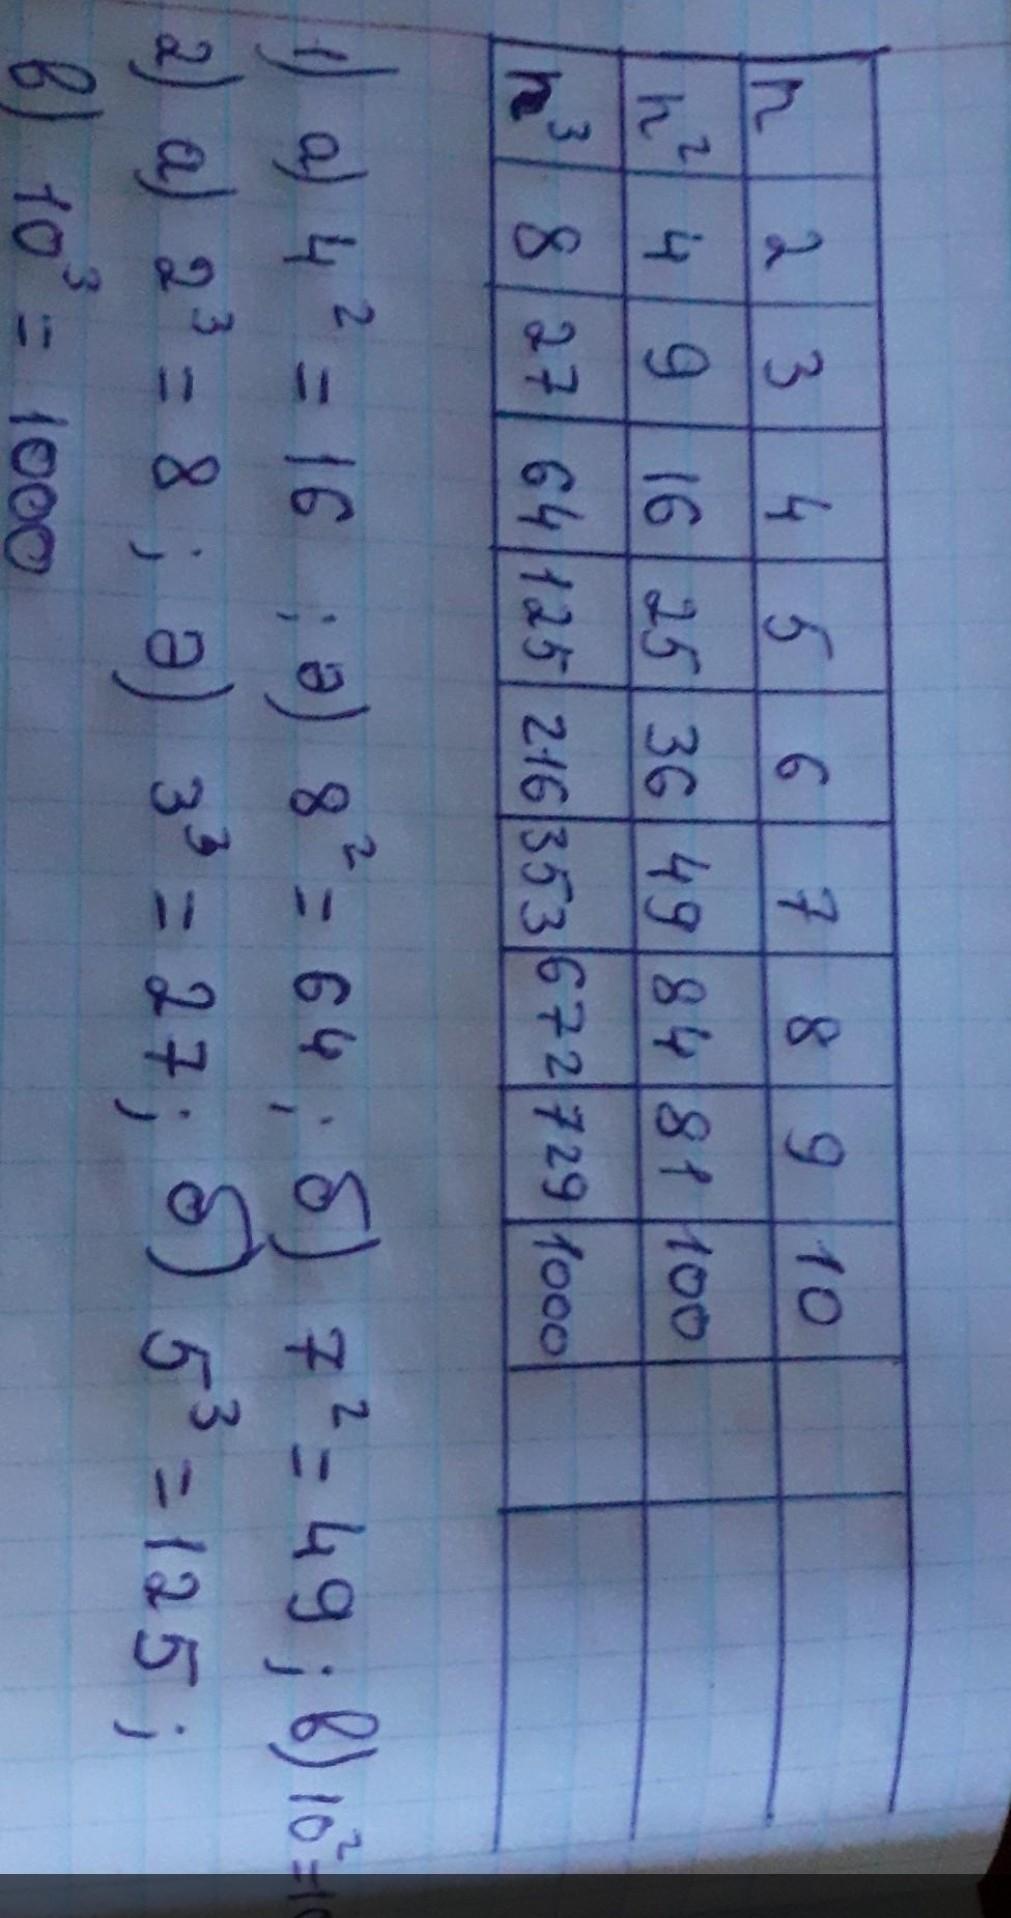 n 2 3 4 5 6 7 8 9 10
n² 4 9 16 25 36 49 84 81 100
n³ 8 27 64 125 216 353 672 729 1000
1) а) 4² = 16 ; ә) 8² = 64 ; б) 7² = 49 ; в) 10² = 10
2) а) 2³ = 8 ; ә) 3³ = 27 ; б) 5³ = 125 ;
в) 10³ = 1000